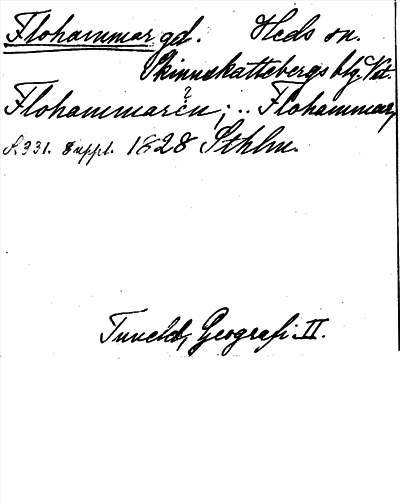 Flohammar gd. Heds sn.
Skinnskattebergs blg. Vstm.
?
Flohammaren; .. Flohammar,
S. 331. Suppl. 1828 Sthlm.
Tuneld, Geografi. II.